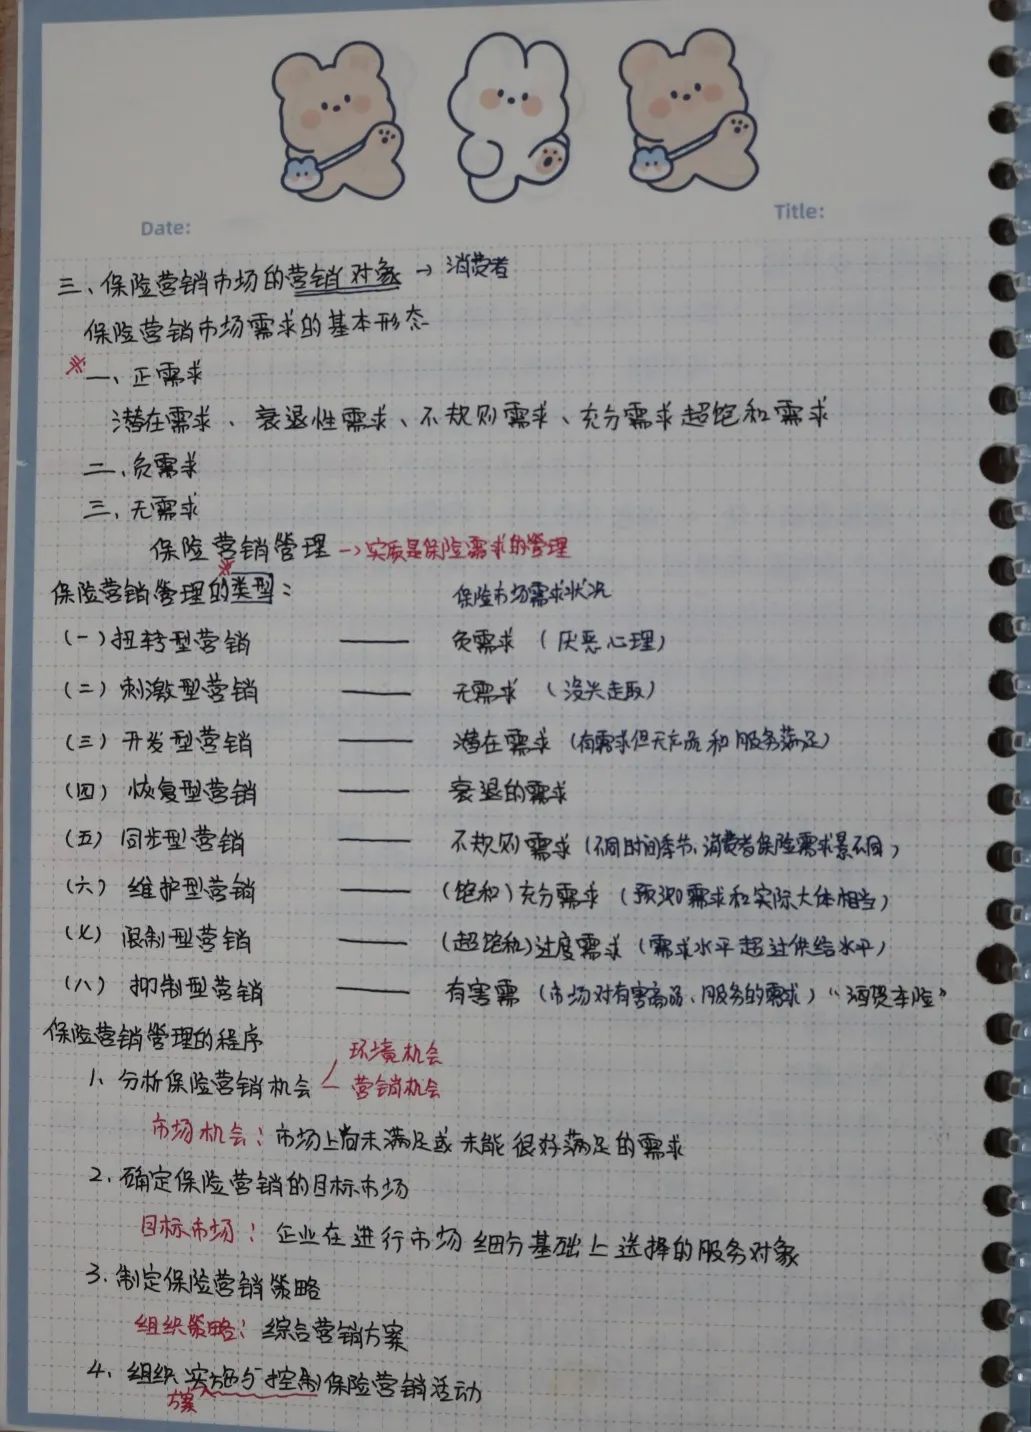 Date:
Title:
三、保险营销市场的营销对象 → 消费者
保险营销市场需求的基本形态
※ 一、正需求
潜在需求、衰退性需求、不规则需求、充分需求 超饱和需求
二、负需求
三、无需求
保险营销管理 → 实质是保险需求的管理
※
保险营销管理的类型: 保险市场需求状况
(一)扭转型营销 —— 负需求 (厌恶心理)
(二)刺激型营销 —— 无需求 (没兴趣)
(三)开发型营销 —— 潜在需求 (有需求但无产品和服务满足)
(四)恢复型营销 —— 衰退的需求
(五)同步型营销 —— 不规则需求 (不同时间季节、消费者保险需求量不同)
(六)维护型营销 —— (饱和)充分需求 (预测需求和实际大体相当)
(七)限制型营销 —— (超饱和)过度需求 (需求水平超过供给水平)
(八)抑制型营销 —— 有害需 (市场对有害商品、服务的需求)
保险营销管理的程序
环境机会
1、分析保险营销机会 营销机会
市场机会: 市场上尚未满足或未能很好满足的需求
2、确定保险营销的目标市场
目标市场: 企业在进行市场细分基础上选择的服务对象
3、制定保险营销策略
组织策略: 综合营销方案
4、组织实施与控制保险营销活动
方案